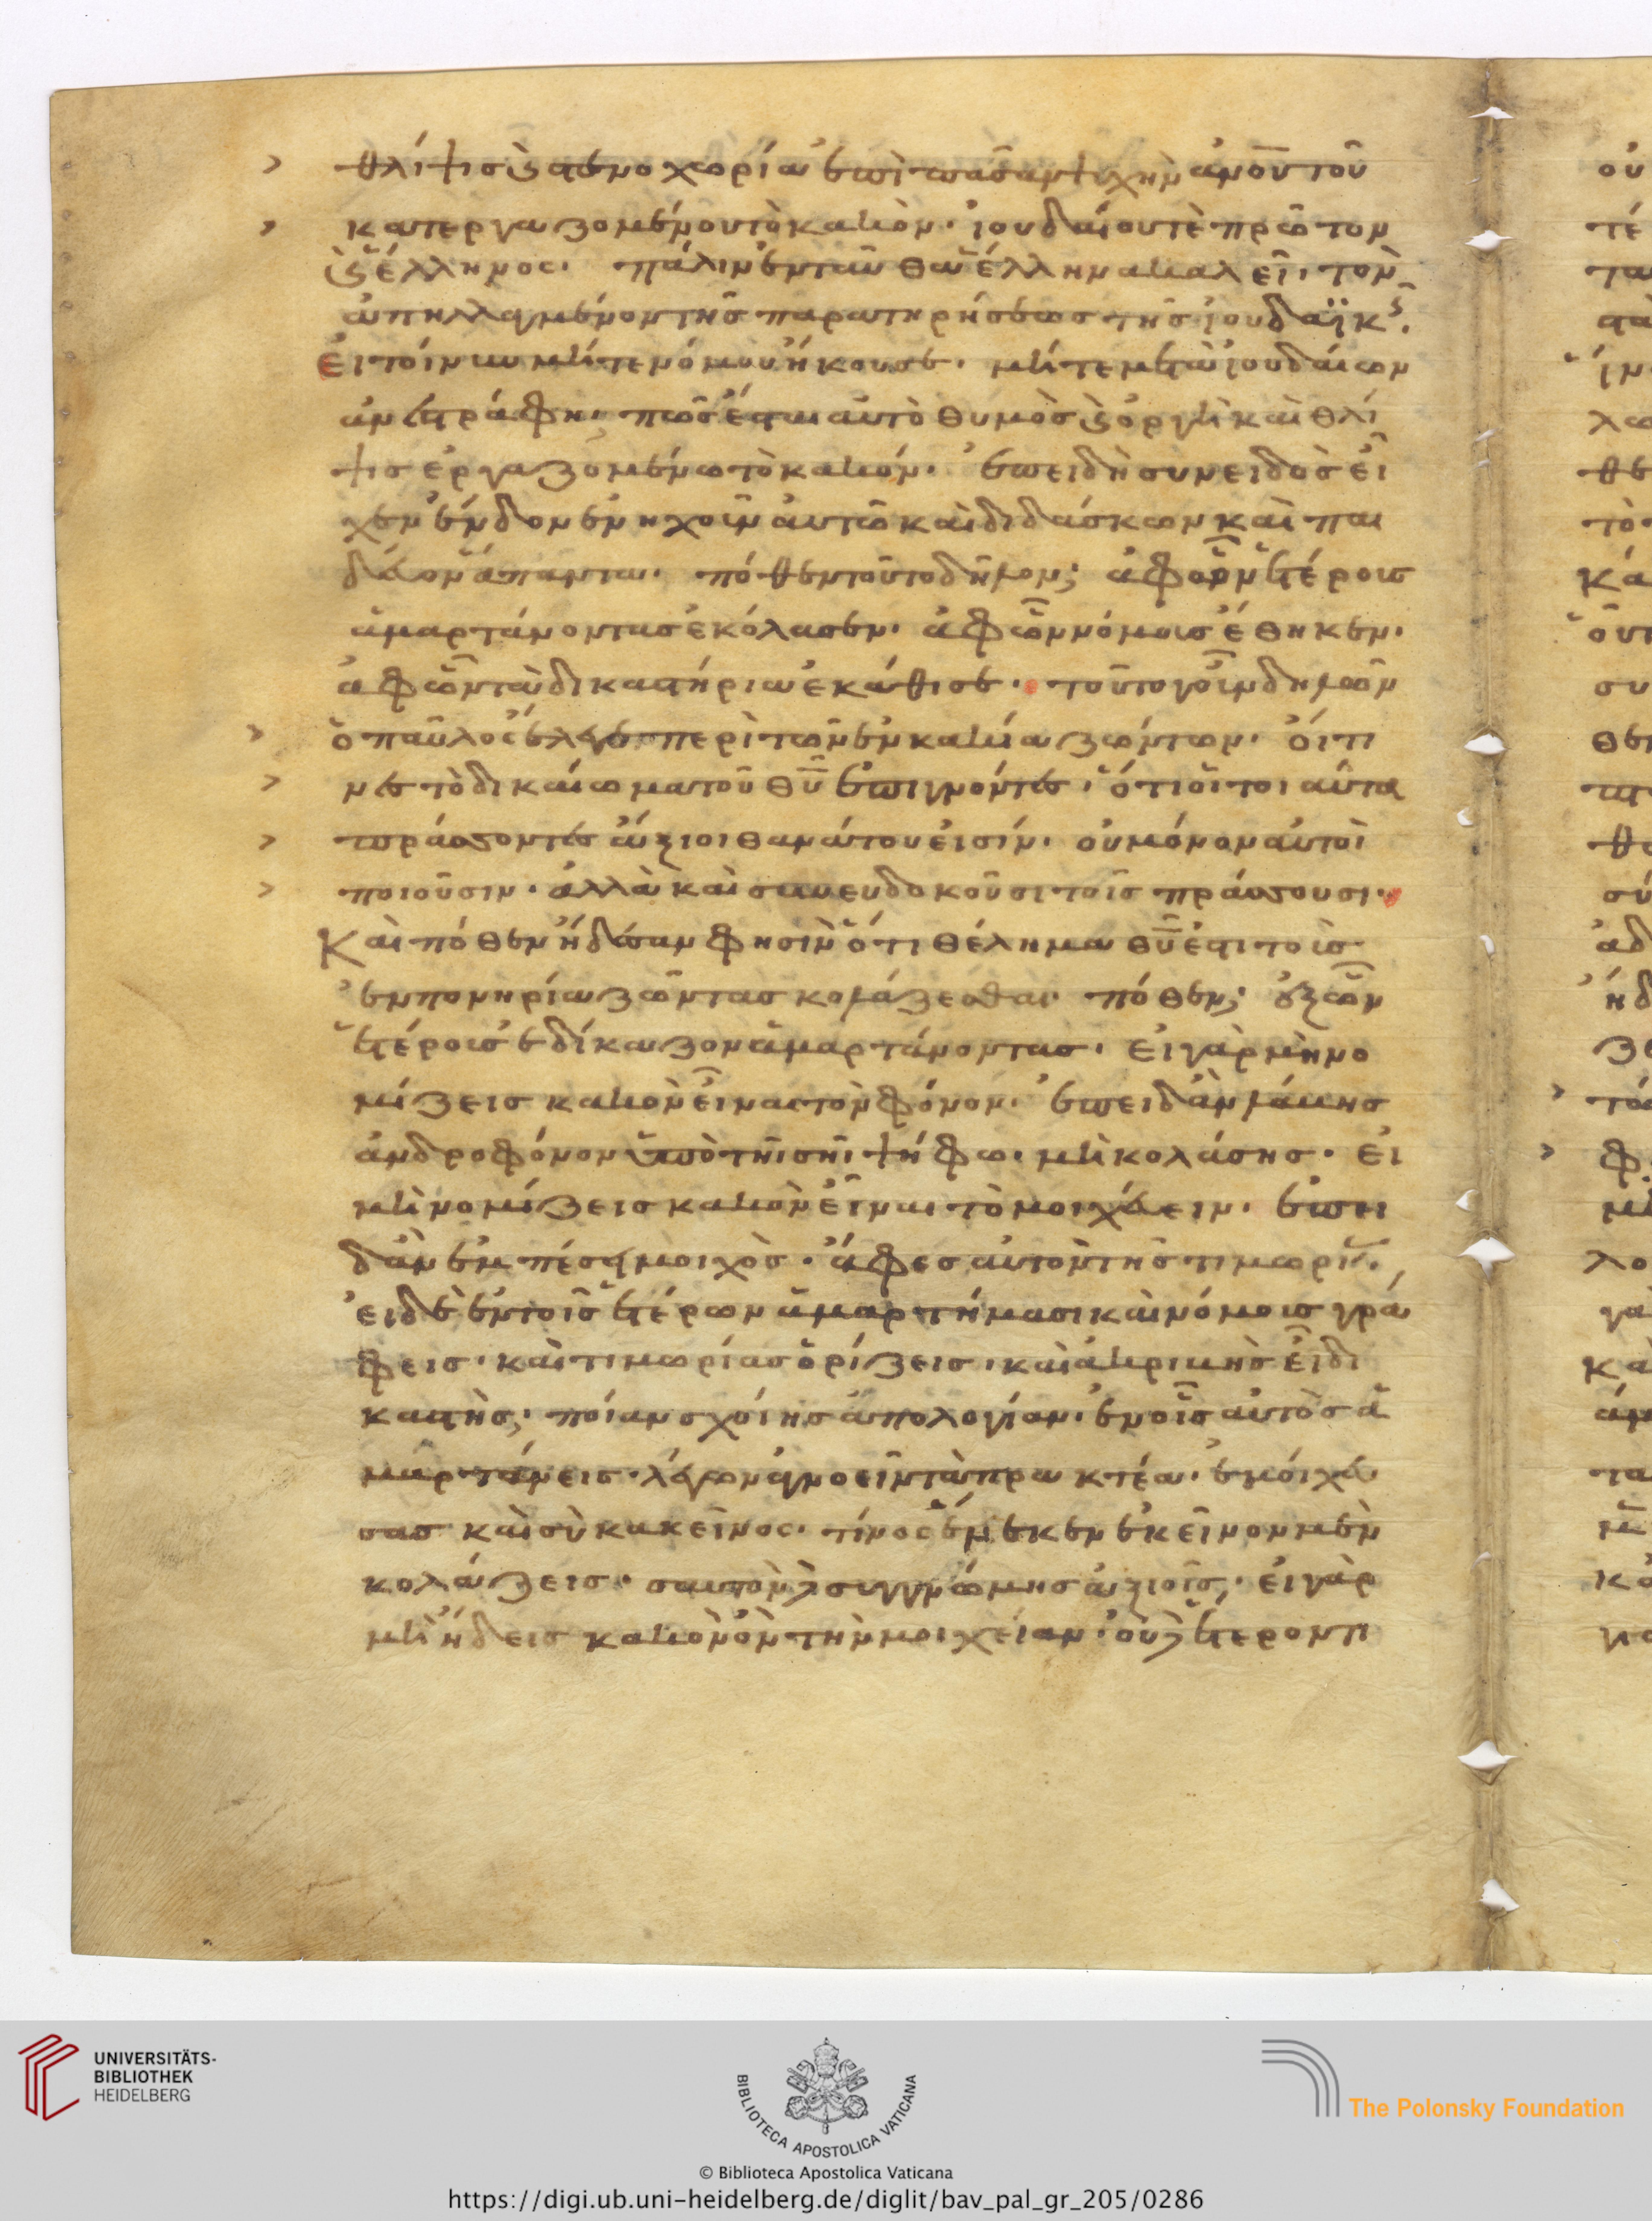 θλίψις καὶ στενοχωρία ἐπὶ πᾶσαν ψυχὴν ἀνοῦ τοῦ
κατεργαζομένου τὸ κακόν. ἰουδαίου τὲ πρῶτον
καὶ ἕλληνος. πάλιν ἐνταῦθα ἕλληνα καλεῖ, τὸν
ἀπηλλαγμένον τῆς παρατηρήσεως τῆς ἰουδαϊκῆς.
εἰ τοίνυν μήτε νόμου ἤκουσε. μήτε μετὰ ἰουδαίων
ἀνετράφη. πῶς ἔσται αὐτῶ θυμὸς καὶ ὀργὴ καὶ θλί
ψις ἐργαζομένω τὸ κακόν. ἐπειδὴ συνειδὸς εἶ
χεν ἔνδον ἐνηχοῦν αὐτῶ καὶ διδάσκων καὶ παι
δεῦον ἅπαντα. πόθεν τοῦτο δῆλον; ἀφ' ὧν ἑτέρους
ἁμαρτάνοντας ἐκόλασεν. ἀφ' ὧν νόμους ἔθηκεν.
ἀφ' ὧν τὰ δικαστήρια ἐκάθισε. τοῦτο γοῦν δηλῶν
ὁ παῦλος ἔλεγε περὶ τῶν ἐν κακία ζώντων. οἵτι
νες τὸ δικαίωμα τοῦ θῦ ἐπιγνόντες. ὅτι οἱ τοιαῦτα
πράσσοντες ἄξιοι θανάτου εἰσίν. οὐ μόνον αὐτοὶ
ποιοῦσιν. ἀλλὰ καὶ συνευδοκοῦσι τοῖς πράσσουσι.
Καὶ πόθεν ἤδεσαν φησὶν ὅτι θέλημα θῦ ἐστι τοὺς
ἐν πονηρία ζῶντας κολάζεσθαι. πόθεν; ἐξ ὧν
ἑτέρους ἐδίκαζον ἁμαρτάνοντας. εἰ γὰρ μὴ νο
μίζεις κακὸν εἶναι τὸν φόνον. ἐπειδὰν λάβης
ἀνδροφόνον ὑπὸ τῆι σῆι ψήφω. μὴ κολάσης. εἰ
μὴ νομίζεις κακὸν εἶναι τὸ μοιχεύειν. ἐπει
δὰν ἐμπέση μοιχὸς. ἄφες αὐτὸν τῆς τιμωρίας.
εἰ δὲ ἐν τοῖς ἑτέρων ἁμαρτήμασι καὶ νόμους γρά
φεις. καὶ τιμωρίας ὁρίζεις. καὶ ἀκριβὴς εἶ δι
καστὴς. ποίαν σχοίης ἀπολογίαν. ἐν οἷς αὐτὸς ἁ
μαρτάνεις. λέγων ἀγνοεῖν τὰ πρακτέα. ἐμοίχευ
σας καὶ σὺ κακεῖνος. τίνος ἕνεκεν ἐκεῖνον μὲν
κολάζεις. σαυτὸν δὲ συγγνώμης ἀξιοῖς; εἰ γὰρ
μὴ ἤδεις κακὸν ὂν τὴν μοιχείαν. οὐδὲ ἕτερον τι
UNIVERSITÄTS-
BIBLIOTHEK
HEIDELBERG
BIBLIOTECA APOSTOLICA VATICANA
© Biblioteca Apostolica Vaticana
The Polonsky Foundation
https://digi.ub.uni-heidelberg.de/diglit/bav_pal_gr_205/0286